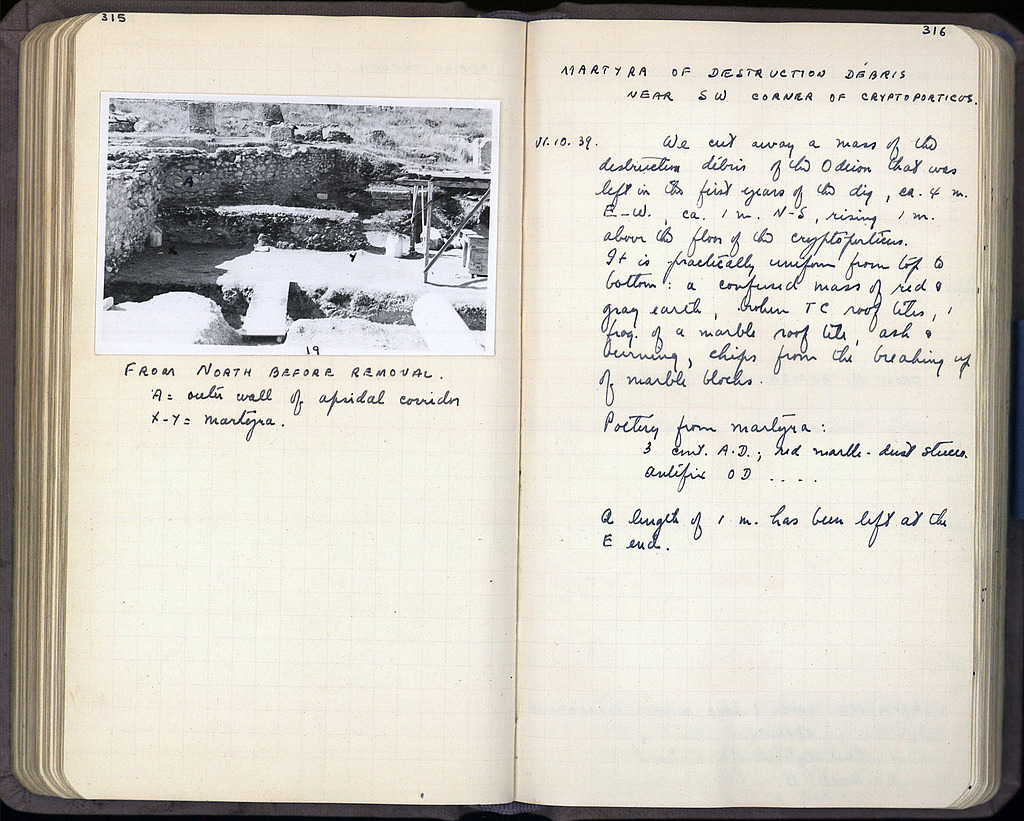 315
A
X
Y
19
FROM NORTH BEFORE REMOVAL.
A = outer wall of apsidal corridor
X-Y = martyra.
316
MARTYRA OF DESTRUCTION DÉBRIS
NEAR SW CORNER OF CRYPTOPORTICUS.
VI.10.39. We cut away a mass of the
destruction débris of the Odeion that was
left in the first years of the dig, ca. 4 m.
E-W., ca. 1 m. N-S, rising 1 m.
above the floor of the cryptoporticus.
It is practically uniform from top to
bottom: a confused mass of red &
gray earth, broken TC roof tiles, 1
frag. of a marble roof tile, ash &
burning, chips from the breaking up
of marble blocks.
Pottery from martyra:
3 cent. A.D.; red marble-dust stucco
antefix OD ....
A length of 1 m. has been left at the
E end.